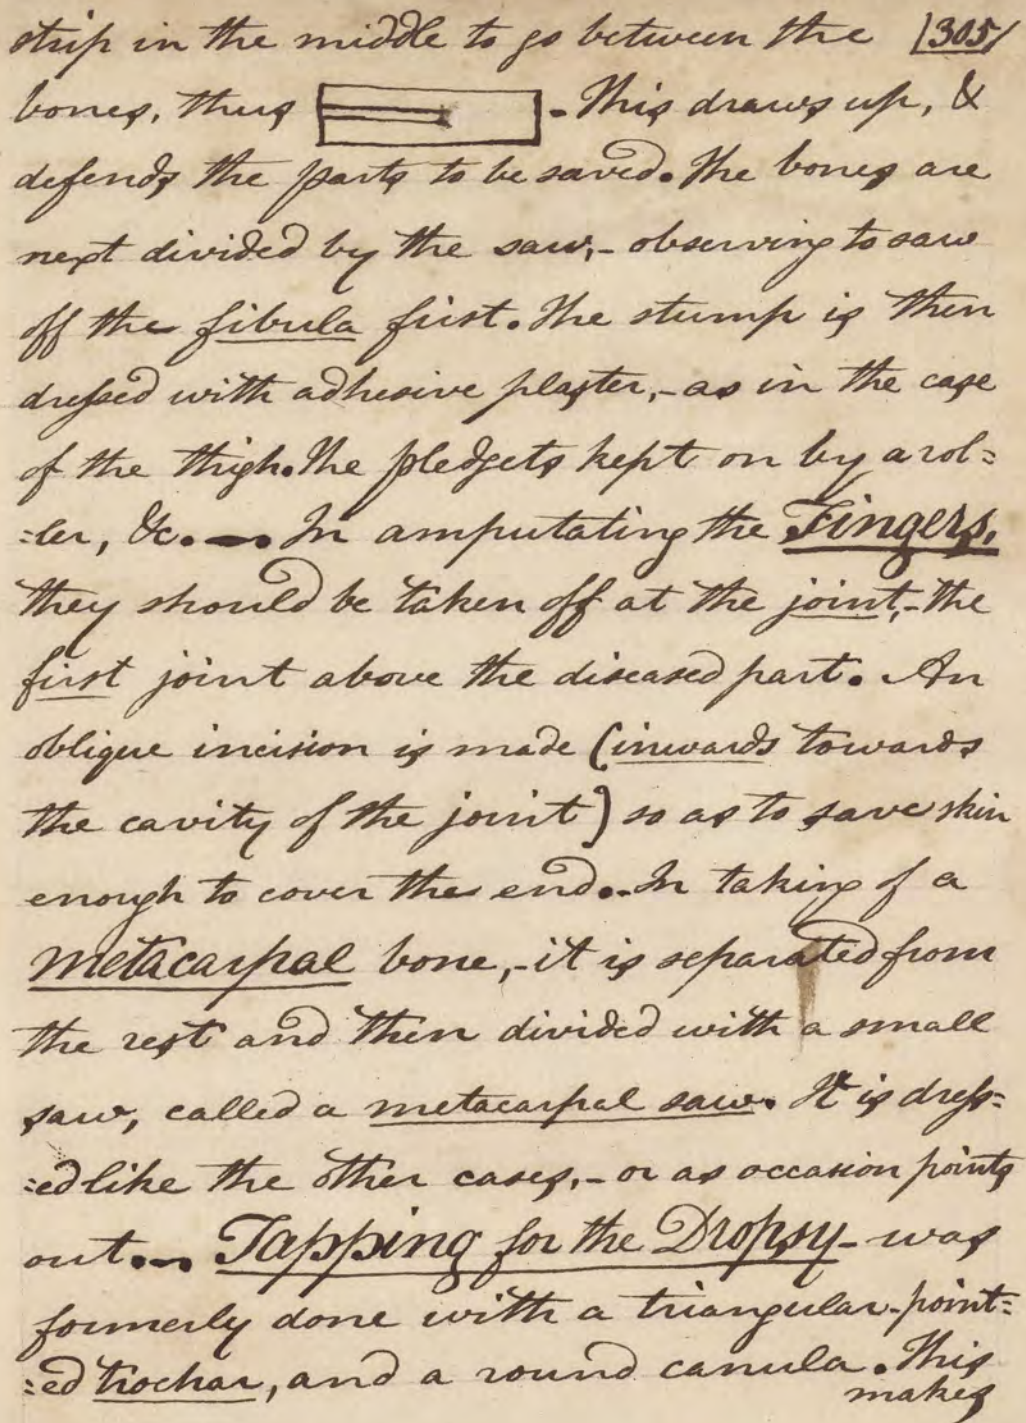 strip in the middle to go between the |305/
bones, thus . This draws up, &
defends the parts to be saved. The bones are
next divided by the saw,- observing to saw
off the fibula first. The stump is then
dressed with adhesive plaster,- as in the case
of the thigh. The pledgets kept on by a rol=
=ler, &c. — In amputating the Fingers,
they should be taken off at the joint,- the
first joint above the diseased part. An
oblique incision is made (inwards towards
the cavity of the joint) so as to save skin
enough to cover the end. In taking of a
metacarpal bone,- it is separated from
the rest and then divided with a small
saw, called a metacarpal saw. It is dress=
=ed like the other cases,- or as occasion points
out. ~ Tapping for the Dropsy - was
formerly done with a triangular-point=
=ed trochar, and a round canula. This
makes